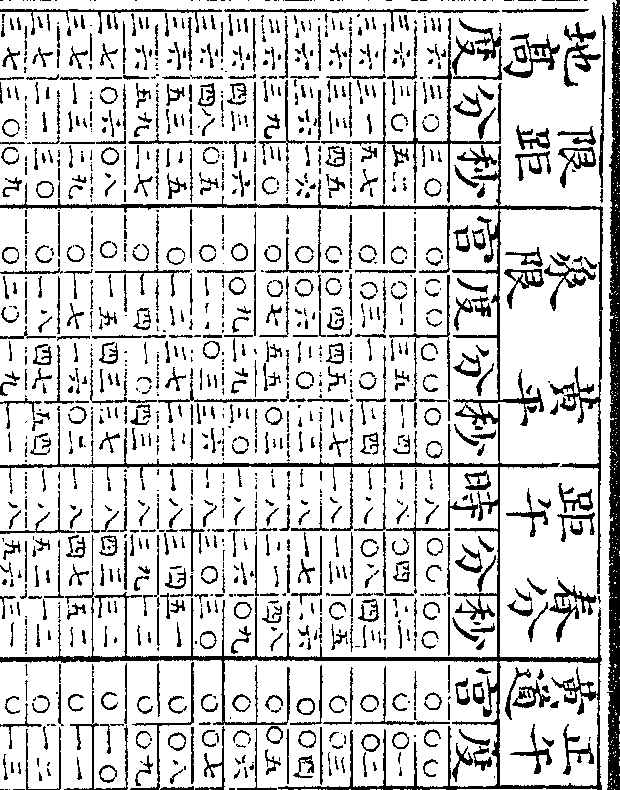 地高 限距 象限 黃平 距午 春分 黃道 正午
度 分 秒 宮 度 分 秒 時 分 秒 宮 度
三六 三〇 三〇 〇 〇〇 〇〇 〇〇 一八 〇〇 〇〇 〇 〇〇
三六 三〇 五二 〇 〇一 三五 一四 一八 〇四 二二 〇 〇一
三六 三一 五七 〇 〇三 一〇 二四 一八 〇八 四三 〇 〇二
三六 三三 四五 〇 〇四 四五 二七 一八 一三 〇五 〇 〇三
三六 三六 一六 〇 〇六 二〇 二二 一八 一七 二六 〇 〇四
三六 三九 三〇 〇 〇七 五五 〇三 一八 二一 四八 〇 〇五
三六 四三 二六 〇 〇九 二九 三〇 一八 二六 〇九 〇 〇六
三六 四八 〇五 〇 一一 〇三 三六 一八 三〇 三〇 〇 〇七
三六 五三 二五 〇 一二 三七 二二 一八 三四 五一 〇 〇八
三六 五九 二七 〇 一四 一〇 四三 一八 三九 一二 〇 〇九
三七 〇六 〇八 〇 一五 四三 三七 一八 四三 三二 〇 一〇
三七 一三 二九 〇 一七 一六 〇二 一八 四七 五二 〇 一一
三七 二一 三〇 〇 一八 四七 五四 一八 五二 一二 〇 一二
三七 三〇 〇九 〇 二〇 一九 一一 一八 五六 三一 〇 一三